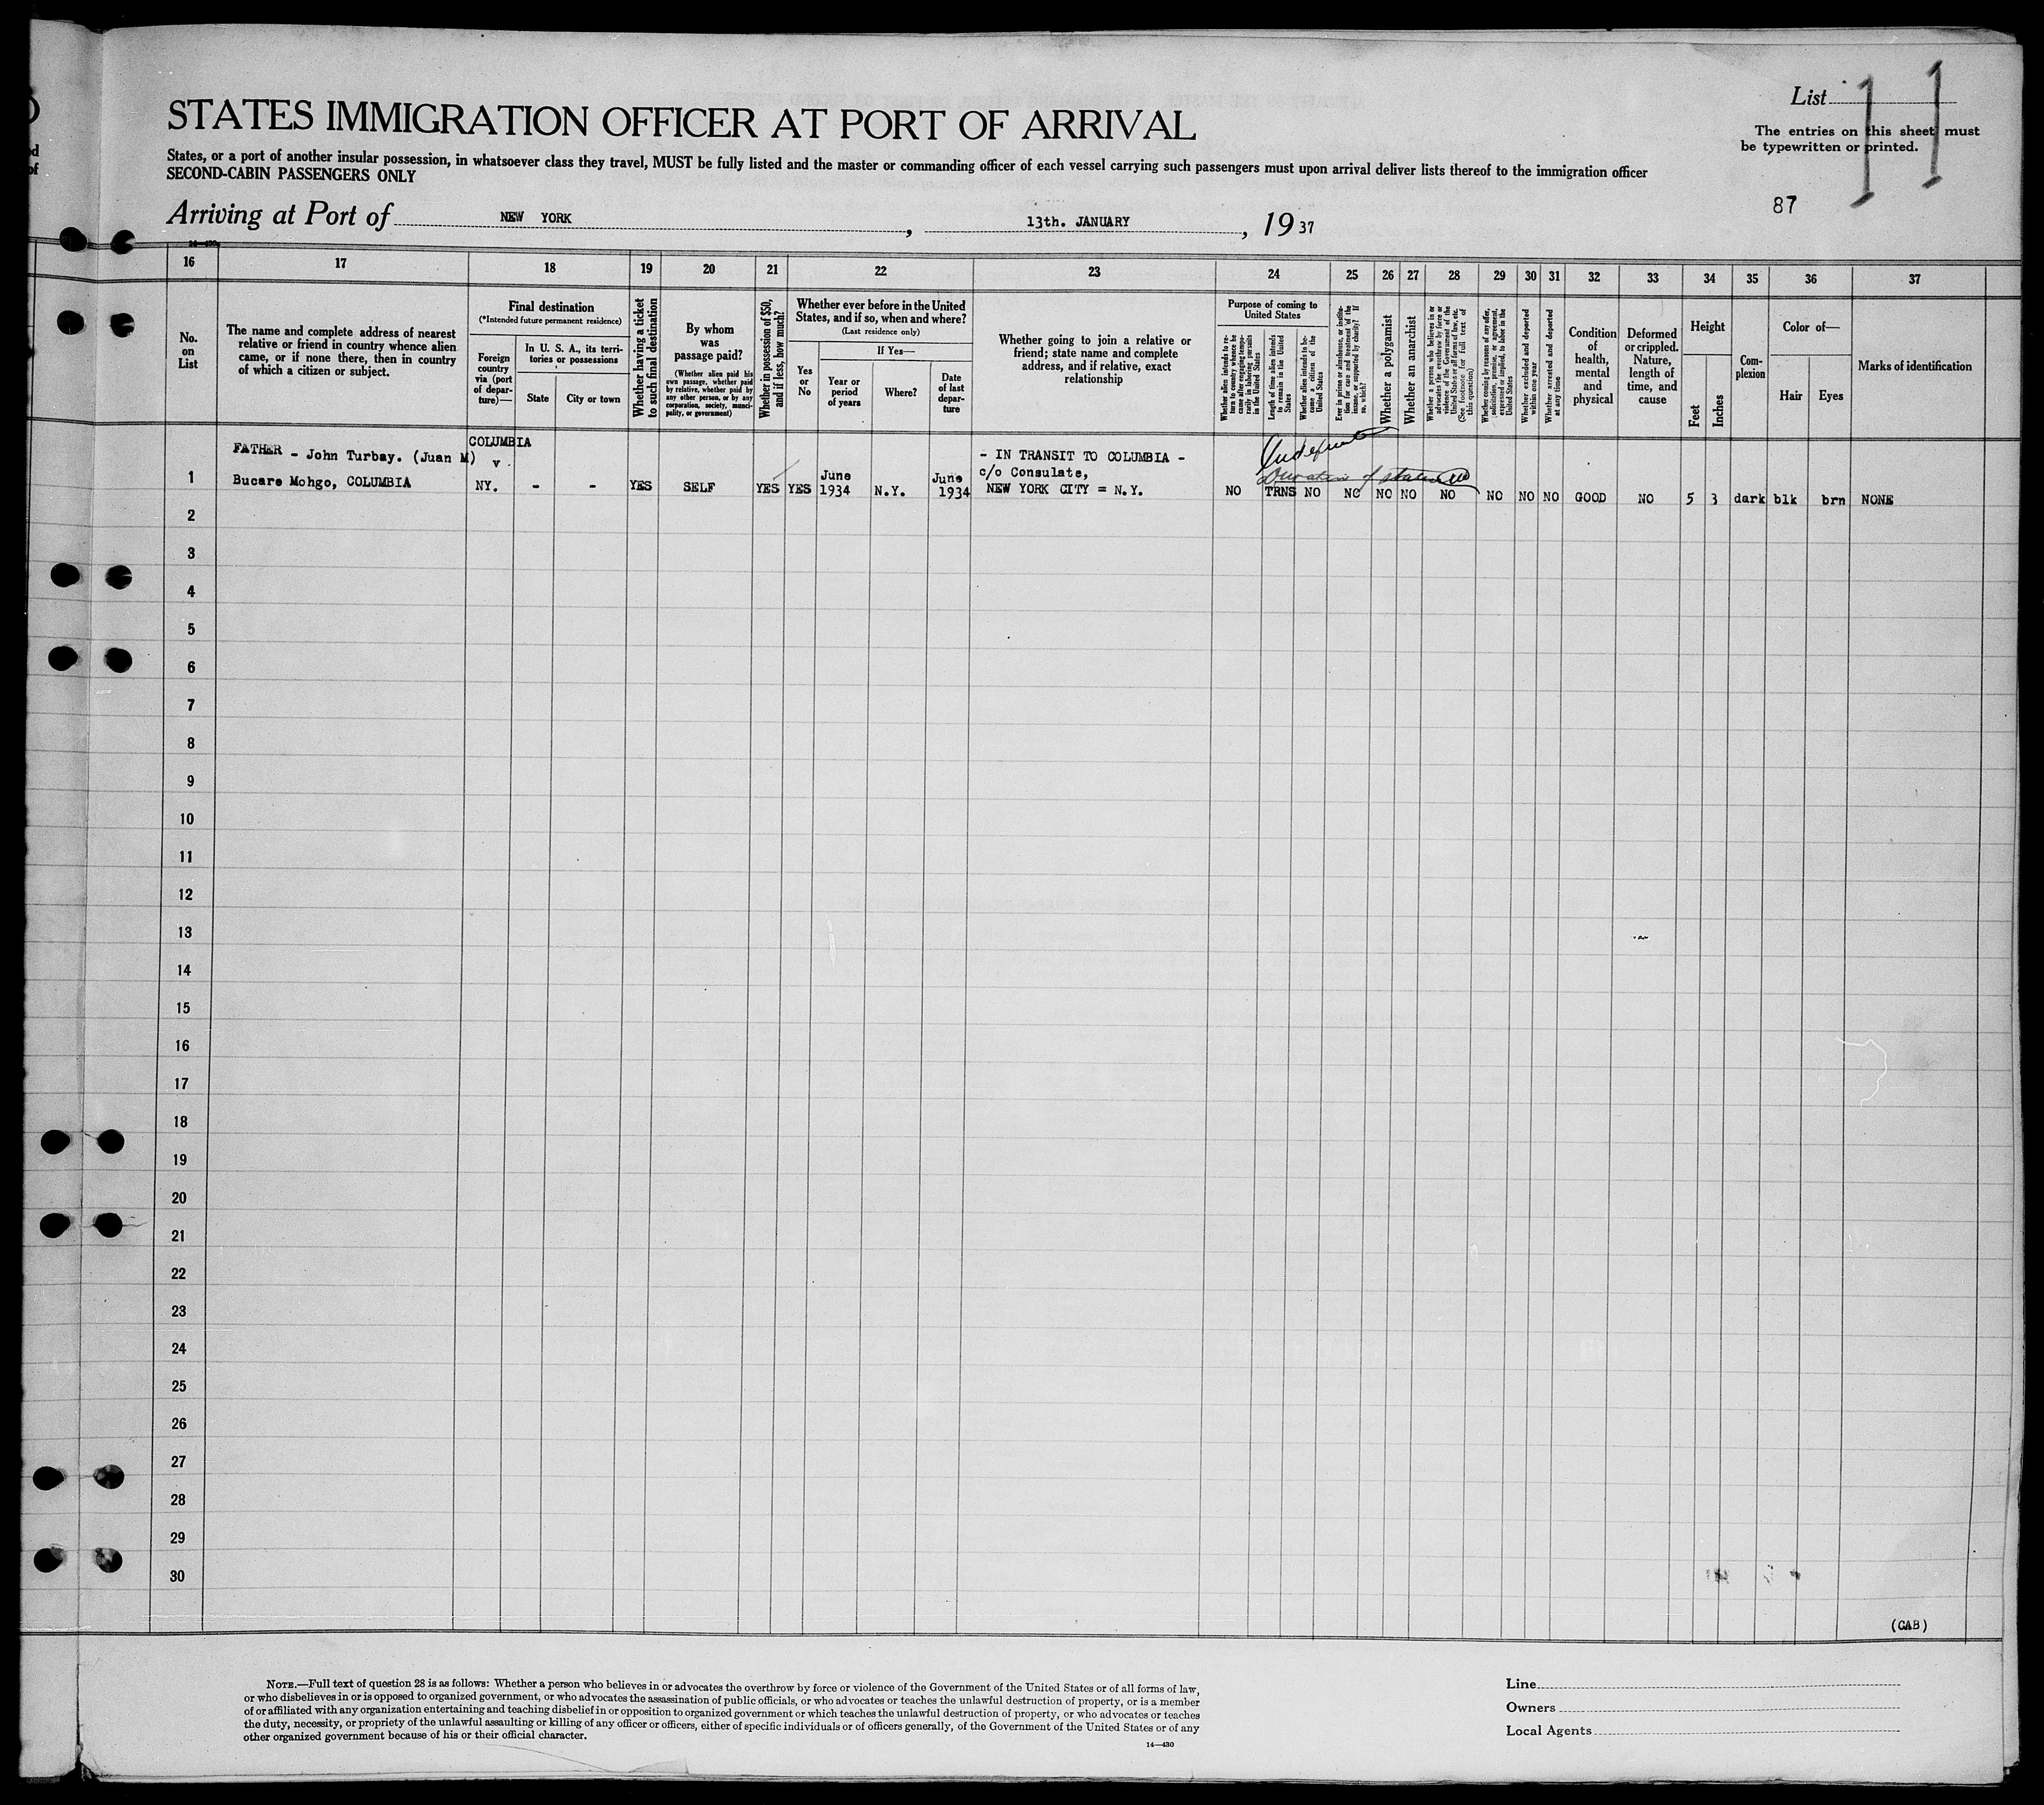 List 11
The entries on this sheet must
be typewritten or printed.
87
STATES IMMIGRATION OFFICER AT PORT OF ARRIVAL
States, or a port of another insular possession, in whatsoever class they travel, MUST be fully listed and the master or commanding officer of each vessel carrying such passengers must upon arrival deliver lists thereof to the immigration officer
SECOND-CABIN PASSENGERS ONLY
Arriving at Port of NEW YORK, 13th. JANUARY, 1937
14—430
16 17 18 19 20 21 22 23 24 25 26 27 28 29 30 31 32 33 34 35 36 37
No.
on
List
The name and complete address of nearest
relative or friend in country whence alien
came, or if none there, then in country
of which a citizen or subject.
Final destination
(*Intended future permanent residence)
Foreign
country
via (port
of depar-
ture)—
In U. S. A., its terri-
tories or possessions
State
City or town
Whether having a ticket
to such final destination
By whom
was
passage paid?
(Whether alien paid his
own passage, whether paid
by relative, whether paid by
any other person, or by any
corporation, society, munici-
pality, or government)
Whether in possession of $50,
and if less, how much?
Whether ever before in the United
States, and if so, when and where?
(Last residence only)
Yes
or
No
If Yes—
Year or
period
of years
Where?
Date
of last
depar-
ture
Whether going to join a relative or
friend; state name and complete
address, and if relative, exact
relationship
Purpose of coming to
United States
Whether alien intends to re-
turn to country whence he
came after engaging tempo-
rarily in laboring pursuits
in the United States
Length of time alien intends
to remain in the United
States
Whether alien intends to be-
come a citizen of the
United States
Ever in prison or almshouse, or institu-
tion for care and treatment of the
insane, or supported by charity? If
so, which?
Whether a polygamist
Whether an anarchist
Whether a person who believes in or
advocates the overthrow by force or
violence of the Government of the
United States or all forms of law, etc.
(See footnote for full text of
this question)
Whether coming by reasons of any offer,
solicitation, promise, or agreement,
expressed or implied, to labor in the
United States
Whether excluded and deported
within one year
Whether arrested and deported
at any time
Condition
of
health,
mental
and
physical
Deformed
or crippled.
Nature,
length of
time, and
cause
Height
Feet
Inches
Com-
plexion
Color of—
Hair
Eyes
Marks of identification
FATHER - John Turbay. (Juan M)
COLUMBIA
v
- IN TRANSIT TO COLUMBIA -
c/o Consulate,
Indefinite
Duration of status
1 Bucare Mohgo, COLUMBIA NY. - - YES SELF YES YES June 1934 N.Y. June 1934 NEW YORK CITY = N.Y. NO TRNS NO NO NO NO NO NO NO NO GOOD NO 5 3 dark blk brn NONE
2
3
4
5
6
7
8
9
10
11
12
13
14
15
16
17
18
19
20
21
22
23
24
25
26
27
28
29
30
(CAB)
NOTE.—Full text of question 28 is as follows: Whether a person who believes in or advocates the overthrow by force or violence of the Government of the United States or of all forms of law,
or who disbelieves in or is opposed to organized government, or who advocates the assassination of public officials, or who advocates or teaches the unlawful destruction of property, or is a member
of or affiliated with any organization entertaining and teaching disbelief in or opposition to organized government or which teaches the unlawful destruction of property, or who advocates or teaches
the duty, necessity, or propriety of the unlawful assaulting or killing of any officer or officers, either of specific individuals or of officers generally, of the Government of the United States or of any
other organized government because of his or their official character.
14—430
Line
Owners
Local Agents